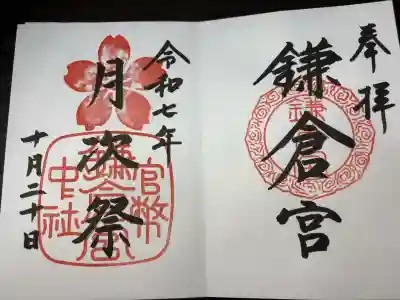 奉拝
鎌倉宮
鎌
令和七年
月次祭
十月二十日
官幣
鎌倉宮
中社